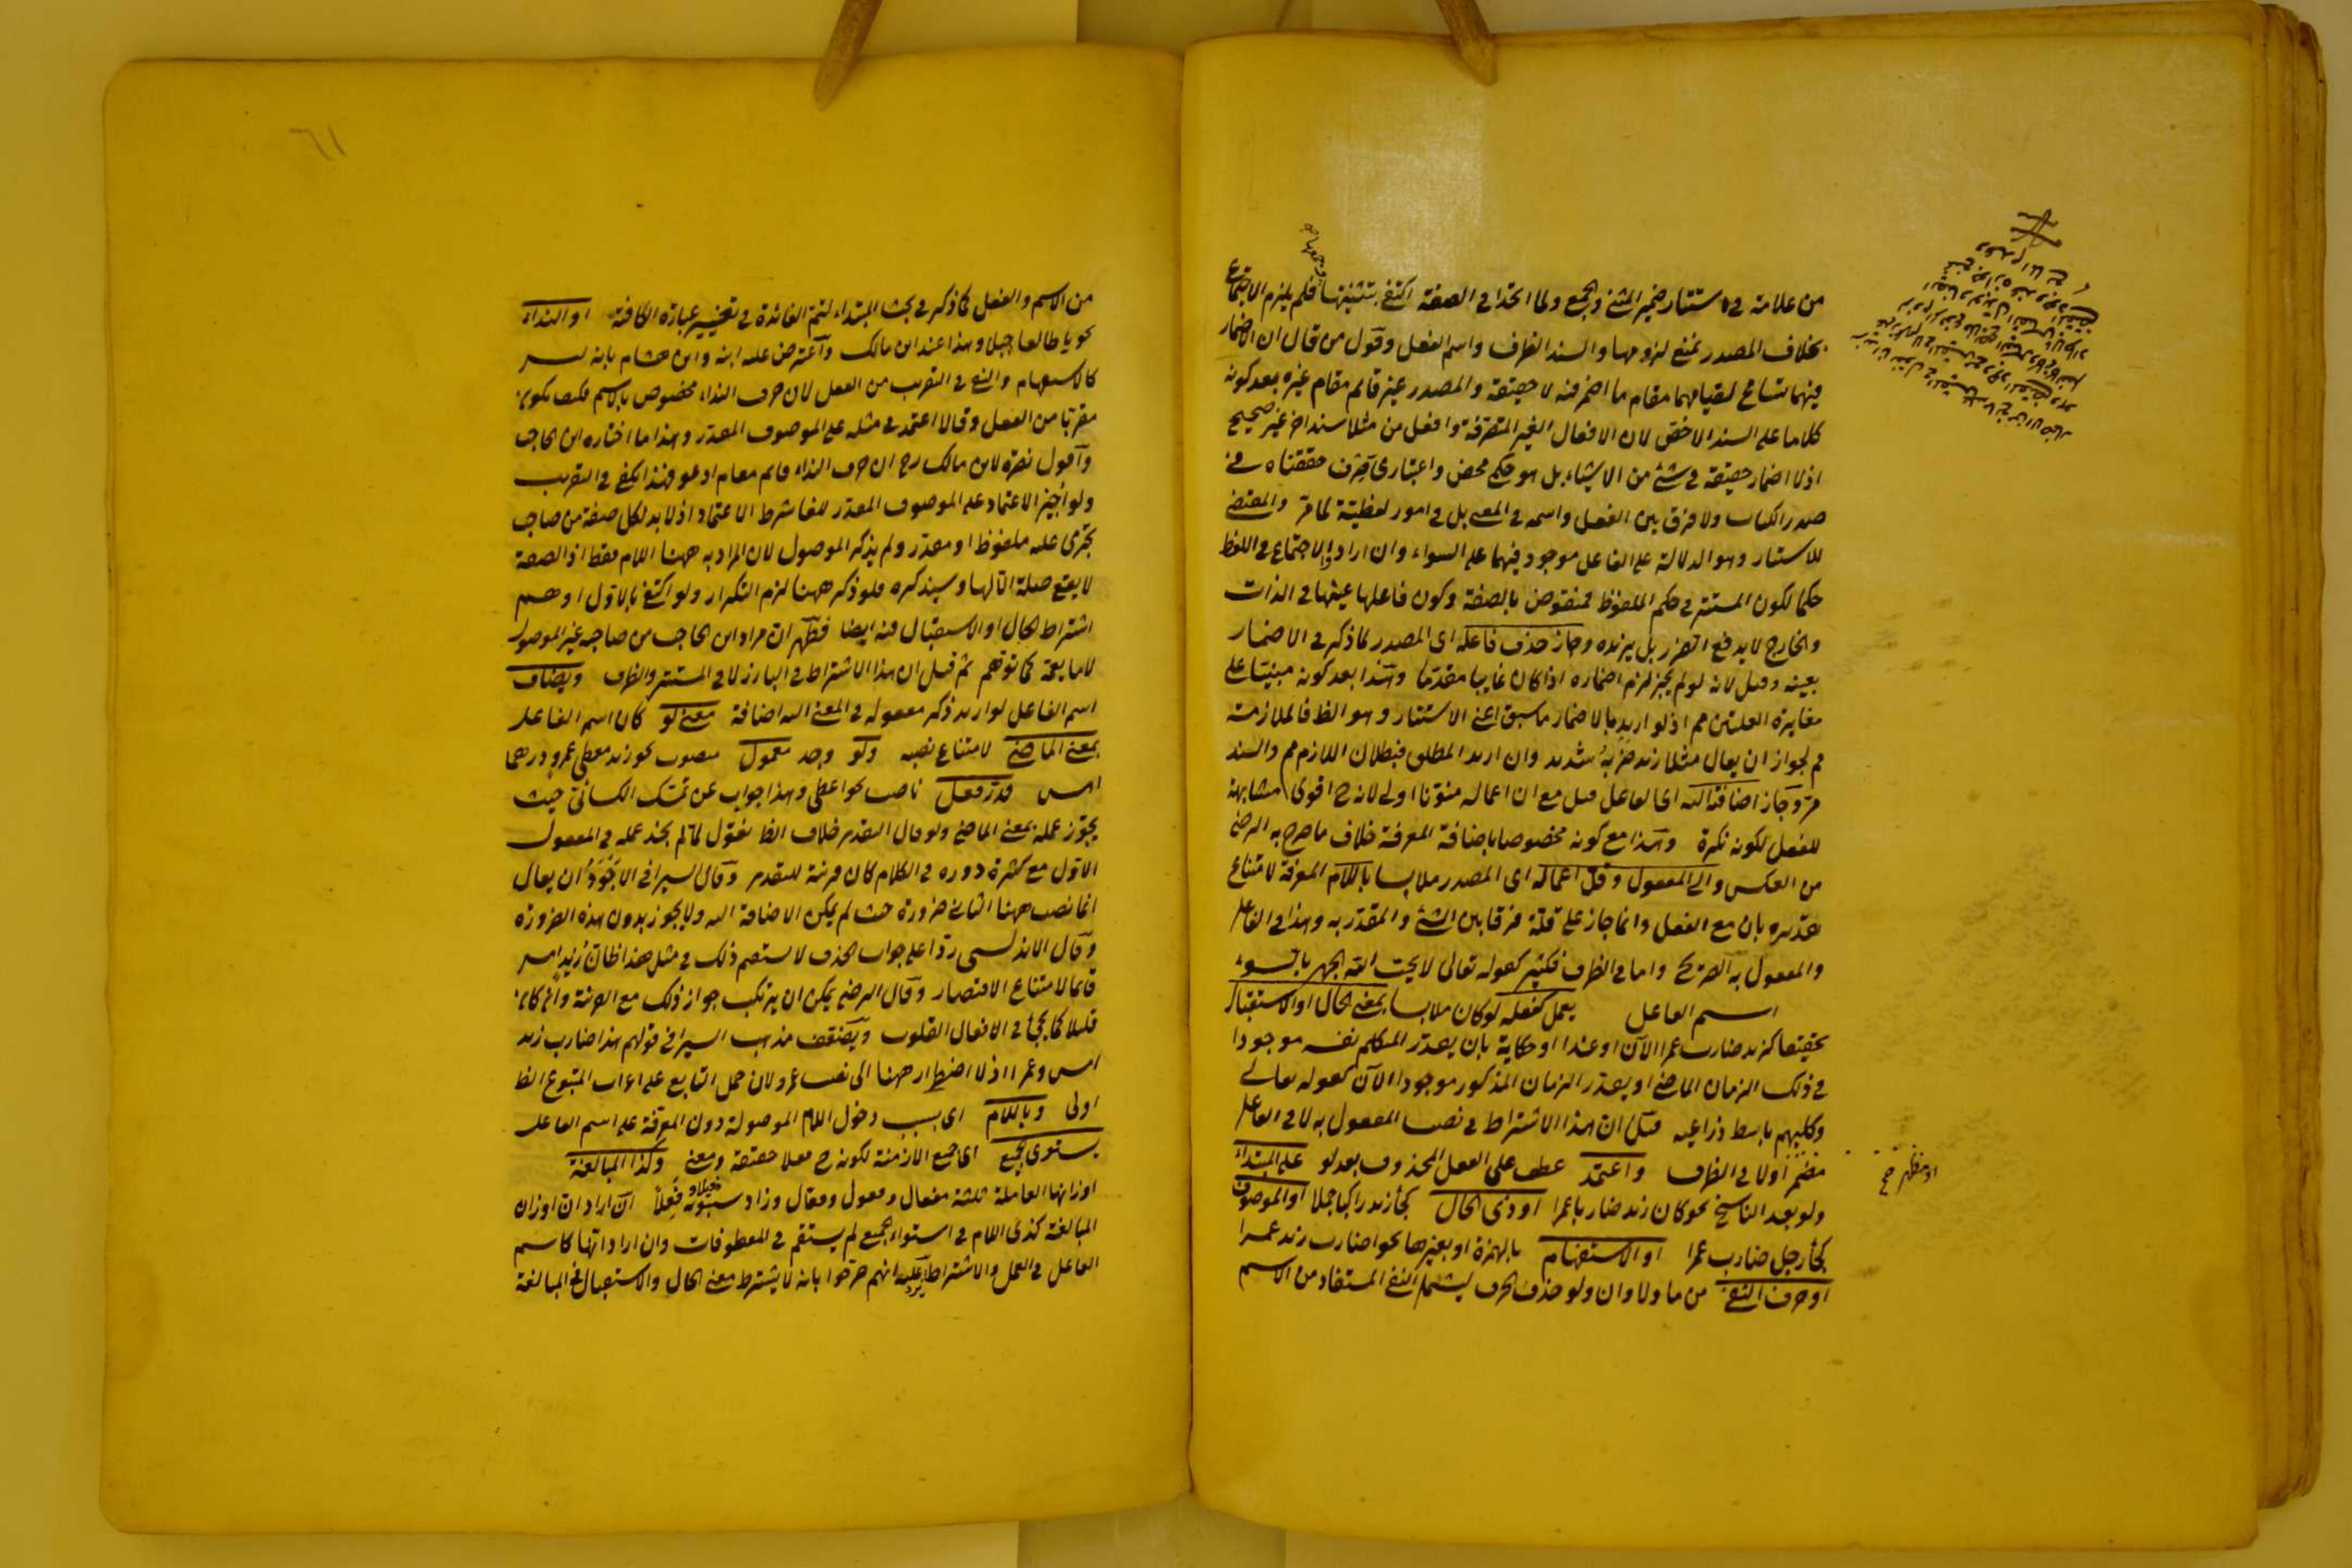 من علامته في استتار ضمير المثنى والجمع ولما اتحدا في الصفة اكتفى بتثنيتها وجمعها فلم يلزم الاجتماع
بخلاف المصدر يمنع لزومها والسند الظرف واسم الفعل وقول من قال ان الاضمار
فيهما تسامح لقيامهما مقام ما اضمر فيه لا حقيقة والمصدر غير قائم مقام غيره بعد كونه
كلاما على السند الاخص لان الافعال الغير المتصرفة وافعل من مثلا سند اخر غير صحيح
اذ لا اضمار حقيقة في شئ من الاشياء بل هو حكم محض واعتبارى صرف حققناه في
صدر الكتاب ولا فرق بين الفعل واسمه في المعنى بل في امور لفظية كما مر والمقتضى
للاستتار وهو الدلالة على الفاعل موجود فيهما على السواء وان اراد الاجتماع في اللفظ
حكما لكون المستتر في حكم الملفوظ فمنقوض بالصفة وكون فاعلها عينها في الذات
والخارج لا يدفع الضرر بل يزيده وجاز حذف فاعله اى المصدر لما ذكر في الاضمار
بعينه وقيل لانه لو لم يجز لزم اضماره اذا كان غايبا مقدما وهذا بعد كونه مبنيا على
مغايرة العلتين مم اذ لو اريد بالاضمار ما سبق اعنى الاستتار وهو الظ فالملازمة
مم لجواز ان يقال مثلا زيد ضربه شديد وان اريد المطلق فبطلان اللازم مم والسند
مر وجاز اضافته اليه اى الفاعل قيل مع ان اعماله منونا اولى لانه ح اقوى مشابهة
للفعل لكونه نكرة وهذا مع كونه مخصوصا باضافة المعرفة خلاف ما صرح به الرضى
من العكس والى المفعول وقل اعماله اى المصدر ملابسا باللام المعرفة لامتناع
تقديره بان مع الفعل وانما جاز على قلة فرقا بين الشئ والمقدر به وهذا في الفاعل
والمفعول به الصريح واما في الظرف فكثير كقوله تعالى لا يحب الله الجهر بالسوء
اسم الفاعل يعمل كفعله لو كان ملابسا بمعنى الحال او الاستقبال
تحقيقا كزيد ضارب عمرا الآن او غدا او حكاية بان يقدر المتكلم نفسه موجودا
في ذلك الزمان الماضى او يقدر الزمان المذكور موجودا الآن كقوله تعالى
وكلبهم باسط ذراعيه قيل ان هذا الاشتراط في نصب المفعول به لا في الفاعل
مضمر اولا في الظرف واعتمد عطف على الفعل المحذوف بعد لو على المبتداء
او مظهر صح
ولو بعد الناسخ نحو كان زيد ضاربا عمرا او ذى الحال كجاء زيد راكبا جملا او الموصوف
كجاء رجل ضارب عمرا او الاستفهام بالهمزة او بغيرها نحو اضارب زيد عمرا
او حرف النفى من ما ولا وان ولو حذف الحرف ليشمل النفى المستفاد من الاسم
٦١
من الاسم والفعل كما ذكر في بحث المبتداء لتتم الفائدة في تغيير عبارة الكافية او النداء
نحو يا طالعا جبلا وهذا عند ابن مالك واعترض عليه ابنه وابن هشام بانه ليس
كالاستفهام والنفى في التقريب من الفعل لان حرف النداء مخصوص بالاسم فكيف يكون
مقربا من الفعل وقالا اعتمد في مثله على الموصوف المقدر وهذا ما اختاره ابن الحاجب
واقول نصرة لابن مالك رح ان حرف النداء قائم مقام ادعو فهذا يكفى في التقريب
ولو اجيز الاعتماد على الموصوف المقدر للغا شرط الاعتماد اذ لا بد لكل صفة من صاحب
يجرى عليه ملفوظ او مقدر ولم يذكر الموصول لان المراد به ههنا اللام فقط اذ الصفة
لا يقع صلة الا لها وسيذكره فلو ذكر ههنا لزم التكرار ولو اكتفى بالاول اوهم
اشتراط الحال او الاستقبال فيه ايضا فظهر ان مراد ابن الحاجب من صاحبه غير الموصول
لا ما يعمه كما توهم ثم قيل ان هذا الاشتراط في البارز لا في المستتر والظرف ويضاف
اسم الفاعل لو اريد ذكر مفعوله في المعنى اليه اضافة معنى لو كان اسم الفاعل
بمعنى الماضى لامتناع نصبه ولو وجد معمول منصوب نحو زيد معطى عمرو درهما
امس قدر فعل ناصب نحو اعطى وهذا جواب عن تمسك الكسائى حيث
يجوز عمله بمعنى الماضى ولو قال التقدير خلاف الظ نقول لما لم نجد عمله في المفعول
الاول مع كثرة دوره في الكلام كان قرينة للتقدير وقال السيرافى الاجود ان يقال
انما نصب ههنا الثانى ضرورة حيث لم يمكن الاضافة اليه ولا يجوز بدون هذه الضرورة
وقال الاندلسى ردا على جواب الحذف لا يستقيم ذلك في مثل هذا ظان زيد امس
قائما لامتناع الاقتصار وقال الرضى يمكن ان يرتكب جواز ذلك مع القرينة وان كان
قليلا كما يجئ في الافعال القلوب ويضعف مذهب السيرافى قولهم هذا ضارب زيد
امس وعمرا اذ لا اضطرار ههنا الى نصب عمرو لان حمل التابع على اعراب المتبوع الظ
اولى وباللام اى بسبب دخول اللام الموصولة دون المعرفة على اسم الفاعل
يستوى الجميع اى جميع الازمنة لكونه ح فعلا حقيقة ومعنى وكذا المبالغة
اوزانها العاملة ثلثة مفعال وفعول وفعال وزاد سيبويه فعلا ان اراد ان اوزان
المبالغة كذى اللام في استواء الجميع لم يستقم في المعطوفات وان اراد انها كاسم
الفاعل في العمل والاشتراط يرد عليه انهم صرحوا بانه لا يشترط معنى الحال والاستقبال في المبالغة